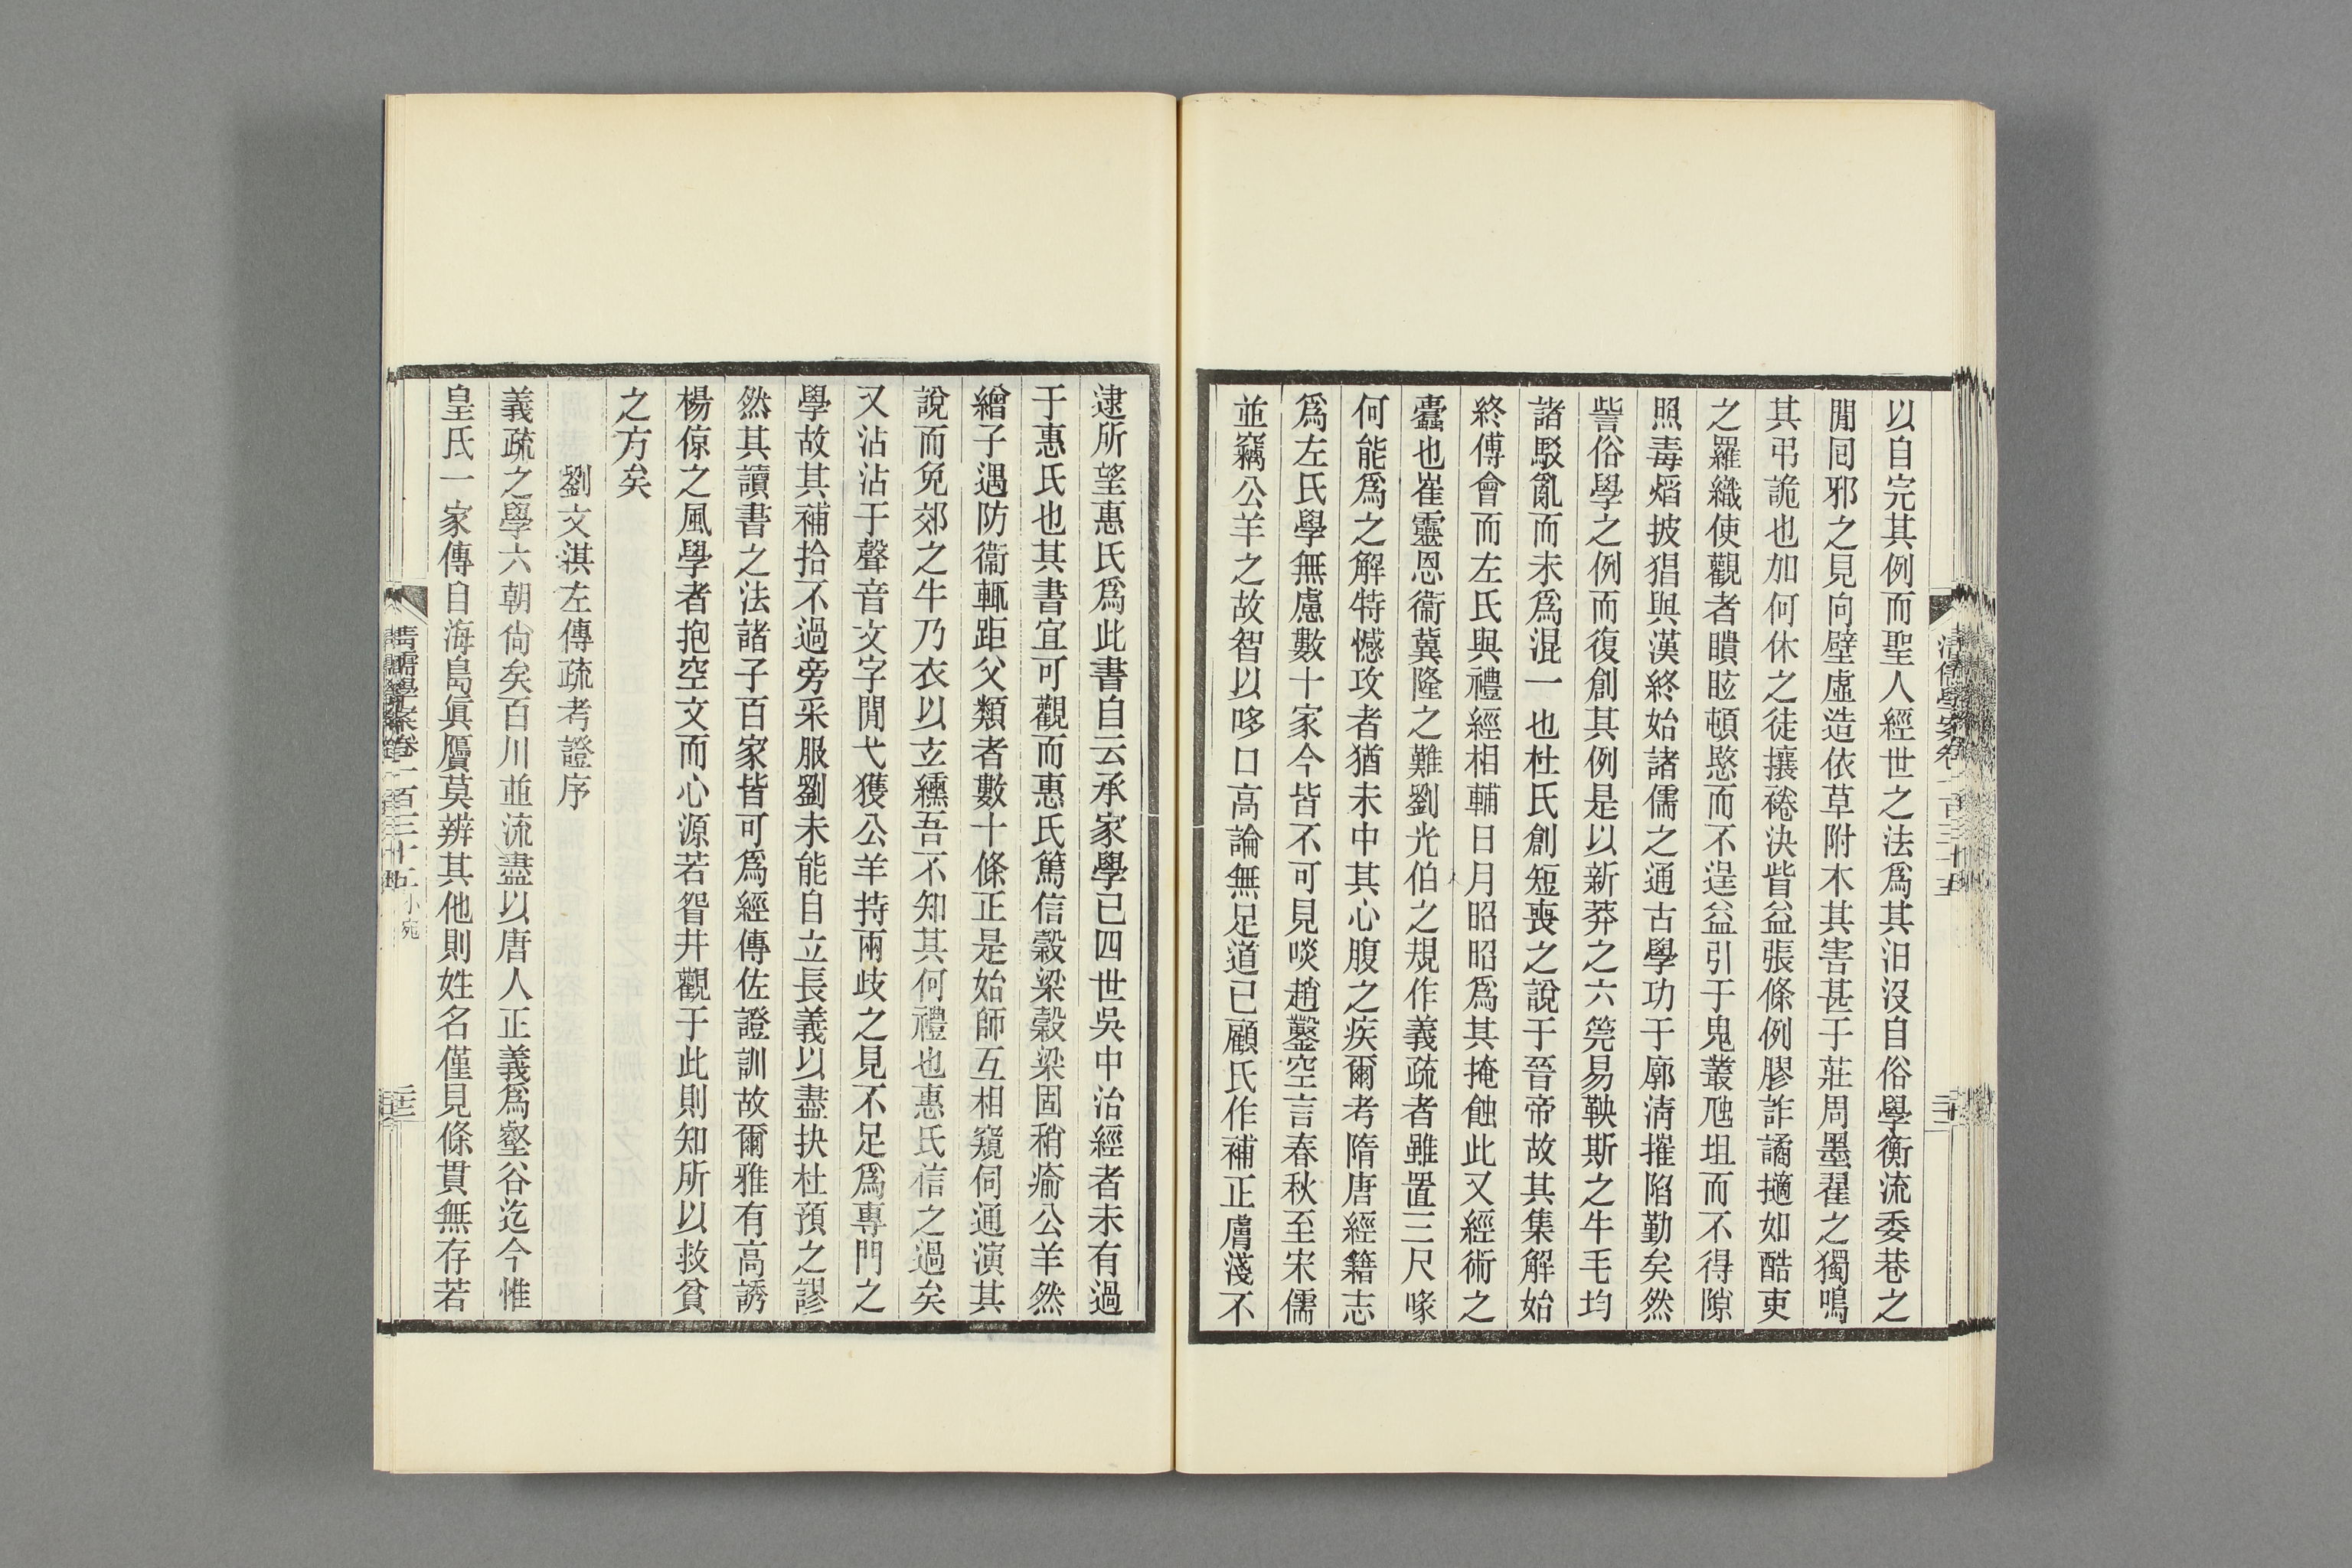 以自完其例而聖人經世之法爲其汨沒自俗學衡流委巷之
閒回邪之見向壁虛造依草附木其害甚于莊周墨翟之獨鳴
其弔詭也加何休之徒攘裷決眥益張條例膠詐譎擿如酷吏
之羅織使觀者瞶眩頓愍而不逞益引于鬼叢虺坦而不得隙
照毒熖披猖與漢終始諸儒之通古學功于廓淸摧陷勤矣然
訾俗學之例而復創其例是以新莽之六筦易鞅斯之牛毛均
諸駁亂而未爲混一也杜氏創短喪之說于晉帝故其集解始
終傅會而左氏與禮經相輔日月昭昭爲其掩蝕此又經術之
蠹也崔靈恩衞冀隆之難劉光伯之規作義疏者雖置三尺喙
何能爲之解特憾攻者猶未中其心腹之疾爾考隋唐經籍志
爲左氏學無慮數十家今皆不可見啖趙鑿空言春秋至宋儒
並竊公羊之故智以哆口高論無足道已顧氏作補正膚淺不
逮所望惠氏爲此書自云承家學已四世吳中治經者未有過
于惠氏也其書宜可觀而惠氏篤信榖梁榖梁固稍瘉公羊然
繒子遇防衞輒距父類者數十條正是始師互相窺伺通演其
說而免郊之牛乃衣以玄纁吾不知其何禮也惠氏信之過矣
又沾沾于聲音文字閒弋獲公羊持兩歧之見不足爲專門之
學故其補拾不過旁采服劉未能自立長義以盡抉杜預之謬
然其讀書之法諸子百家皆可爲經傳佐證訓故爾雅有高誘
楊倞之風學者抱空文而心源若眢井觀于此則知所以救貧
之方矣
劉文淇左傳疏考證序
義疏之學六朝尙矣百川並流盡以唐人正義爲壑谷迄今惟
皇氏一家傳自海島眞贋莫辨其他則姓名僅見條貫無存若
清儒學案卷一百三十五 小宛